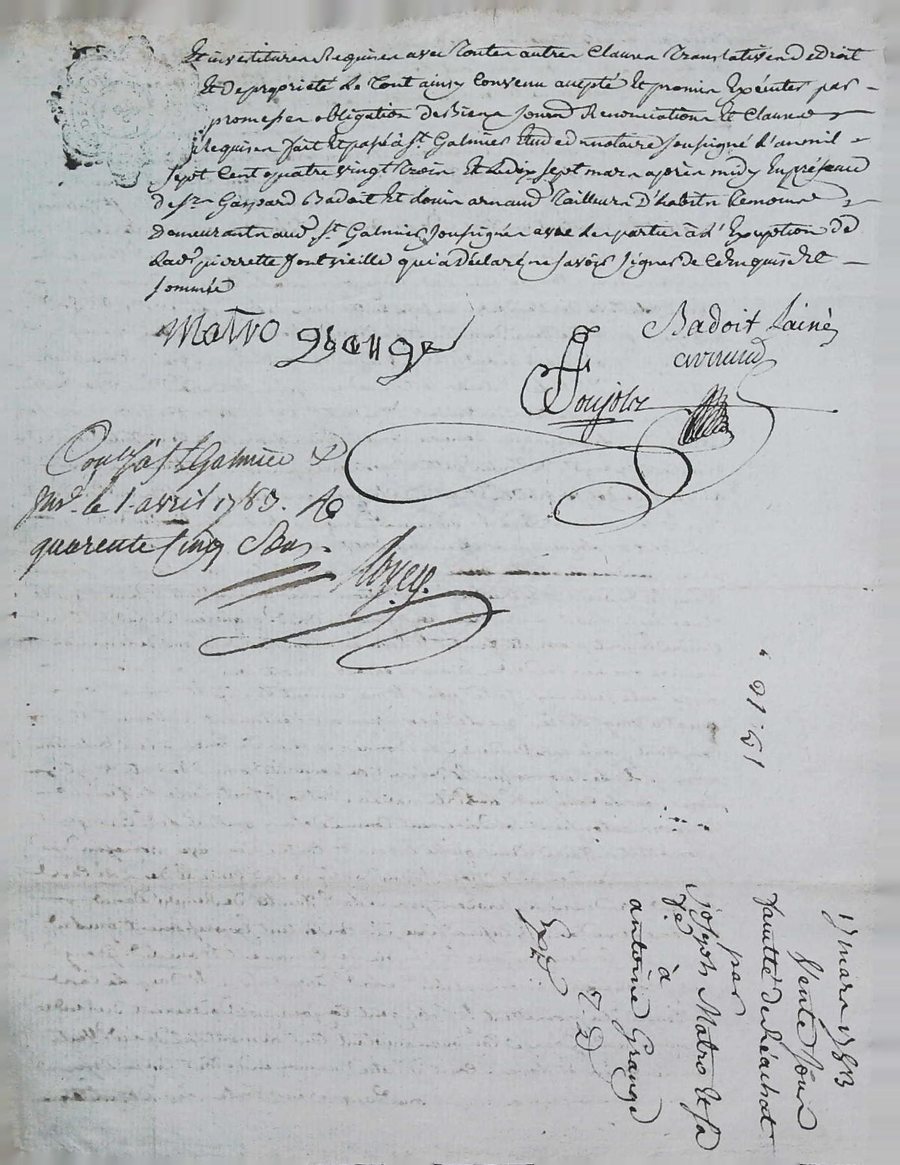 Et investitures Requises avec toutes autres Clauses translatives de droit
Et de propriété Le tout ainsy Convenu accepté Et promis Exécuter par
promesses obligation de Biens soumis Renonciations Et Clauses
Requises fait Et passé à St Galmier Etude du notaire soussigné L'an mil
sept Cent quatre vingt trois Et Le dix sept mars après midy En présence
de srs Gaspard Badoit Et Louis arnaud Tailleurs D'habits témoins
Demeurants aud. St Galmier soussignés avec Les parties à L'Exception de
Lade pierrette fontvieille qui a déclaré ne savoir signer de ce Enquise Et
sommée
Matro Grange
Badoit Lainé
arnaud
Coulé à St Galmier
le 1 avril 1783. R
quarente Cinq Sous.
17 mars 1783
Vente sous
faculté de Réachat
par
joseph Matro Et sa
fe
à
antoine Grange
Expd
T. D